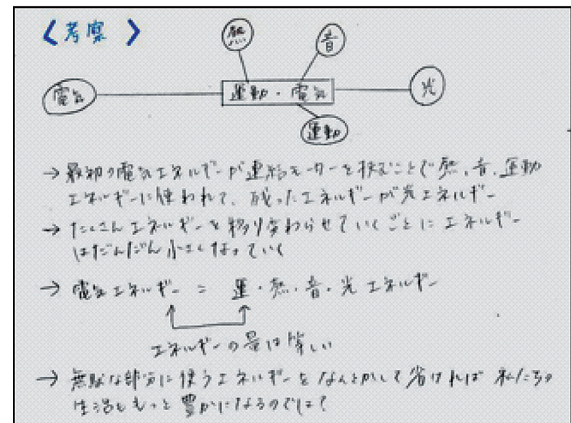 〈考察〉
熱
音
電気
運動・電気
光
運動
→ 最初の電気エネルギーが連結モーターを挟むことで熱、音、運動
エネルギーに使われて、残ったエネルギーが光エネルギー
→ たくさんエネルギーを移り変わらせていくごとにエネルギー
はだんだん小さくなっていく
→ 電気エネルギー = 運・熱・音・光エネルギー
エネルギーの量は等しい
→ 無駄な部分に使うエネルギーをなんとかして省ければ 私たちの
生活ももっと豊かになるのでは?